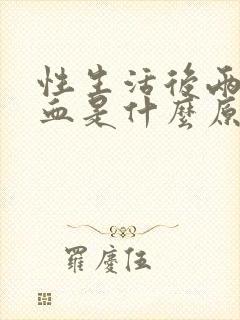 性生活後兩
血是什麼原
羅慶伍